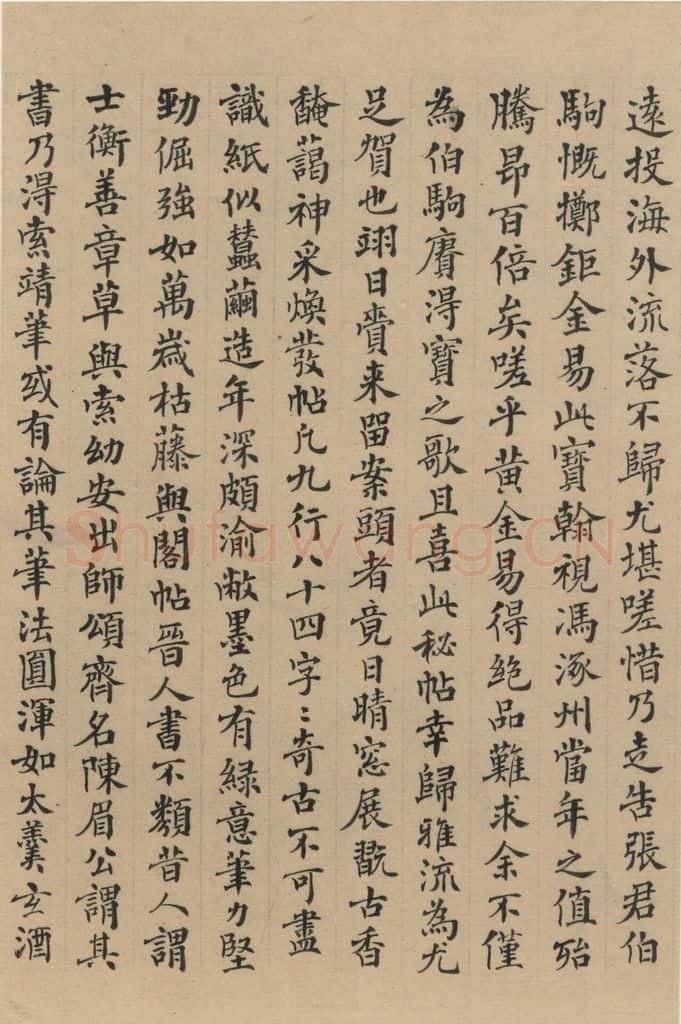 遠投海外流落不歸尤堪嗟惜乃走告張君伯
駒慨擲鉅金易此寶翰視馮涿州當年之值殆
騰昂百倍矣嗟乎黃金易得絕品難求余不僅
為伯駒賡得寶之歌且喜此秘帖幸歸雅流為尤
足賀也翊日賫来留案頭者竟日晴窓展翫古香
馣藹神采煥發帖凡九行八十四字〻奇古不可盡
識紙似蠶繭造年深頗渝敝墨色有綠意筆力堅
勁倔強如萬歲枯藤與閣帖晉人書不類昔人謂
士衡善章草與索幼安出師頌齊名陳眉公謂其
書乃得索靖筆或有論其筆法圓渾如太羹玄酒
Shufawang.CN